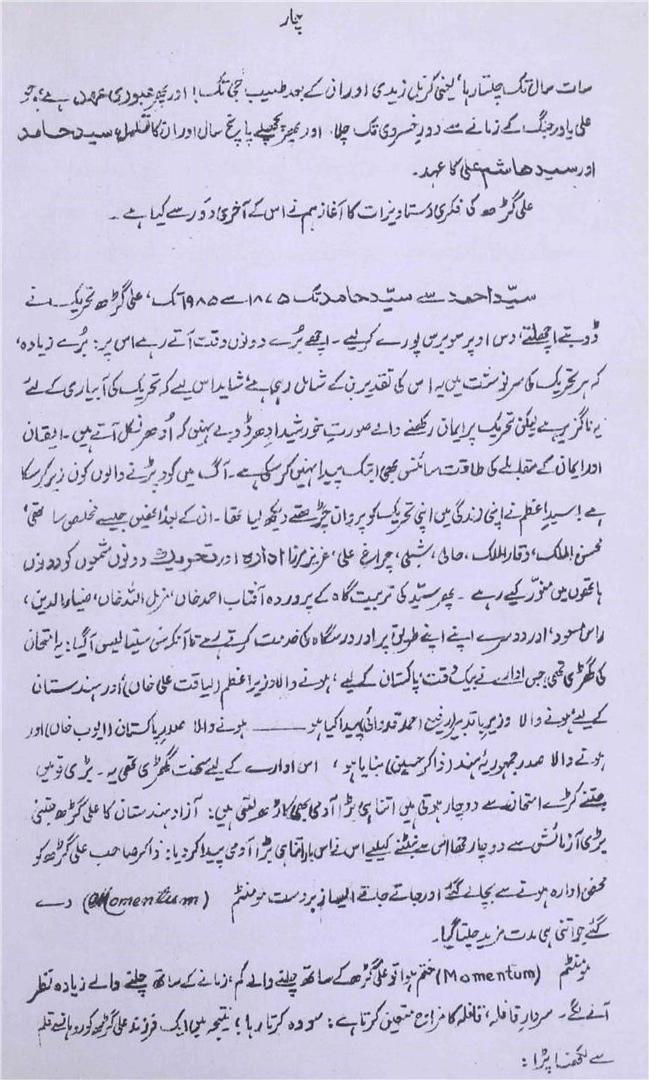 چار
سات سال تک چلتا رہا، یعنی کرنل زیدی اور ان کے بعد طیب جی تک! اور پھر عبوری عہد ہے، جو
علی یاور جنگ کے زمانے سے دورِ خسروی تک چلا اور پھر پچھلے پانچ سال اور ان کا تسلسل، سید حامد
اور سید ہاشم علی کا عہد۔
علی گڑھ کی فکری دستاویزات کا آغاز ہم نے اس کے آخری دور سے کیا ہے۔
سیّد احمد سے سیّد حامد تک ۱۸۷۵ سے ۱۹۸۵ تک، علی گڑھ تحریک نے
ڈوبتے اچھلتے، دس اوپر سو برس پورے کر لیے۔ اچھے بُرے دونوں وقت آتے رہے اس پر: بُرے زیادہ،
کہ ہر تحریک کی سرنوشت میں یہ اس کی تقدیر بن کے شامل رہی ہے شاید اس لیے کہ تحریک کی آبیاری کے لیے
یہ ناگزیر ہے لیکن تحریک پر ایمان رکھنے والے صورتِ خورشید ادھر ڈوبے نہیں کہ اُدھر نکل آتے ہیں۔ ایقان
اور ایمان کے مقابلے کی طاقت سائنس بھی ابتک پیدا نہیں کر سکی ہے۔ آگ میں کود پڑنے والوں کو کون زیر کر سکا
ہے! سیدِ اعظم نے اپنی زندگی میں اپنی تحریک کو پروان چڑھتے دیکھ لیا تھا۔ ان کے بعد انھیں جیسے مخلص ساتھی،
محسن الملک، وقار الملک، حالی، شبلی، چراغ علی، عزیز مرزا ادارہ اور تحریک دونوں شمعوں کو دونوں
ہاتھوں میں منوّر کیے رہے۔ پھر سیّد کی تربیت گاہ کے پروردہ آفتاب احمد خاں، مزمل اللہ خاں، ضیاء الدین،
راس مسعود، اور دوسرے اپنے اپنے طور پر اور درسگاہ کی خدمت کرتے رہے تا آنکہ سن سینتالیس آ گیا: یہ امتحان
کی گھڑی تھی جس ادارے نے بیک وقت، پاکستان کے لیے، ہونے والا وزیراعظم (لیاقت علی خاں)، اور ہندستان
کے لیے ہونے والا وزیر با تدبیر (رفیع احمد قدوائی) پیدا کیا ہو ــــــــ ہونے والا صدر پاکستان (ایوب خاں) اور
ہونے والا صدر جمہوریۂ ہند (ذاکر حسین) بنایا ہو، اس ادارے کے لیے سخت گھڑی تھی یہ۔ بڑی قومیں
جتنے کڑے امتحان سے دوچار ہوتی ہیں اتنا ہی بڑا آدمی بھی کاڑھ لیتی ہیں: آزاد ہندستان کا علی گڑھ جتنی
بڑی آزمائش سے دوچار تھا اس سے نبٹنے کیلیے اس نے اس بار اتنا ہی بڑا آدمی پیدا کر دیا: ذاکر صاحب علی گڑھ کو
محض ادارہ ہونے سے بچا لے گئے اور جاتے جاتے ایسا زبردست مومنٹم (Momentum) دے
گئے جو اتنی ہی مدت مزید چلتا گیا۔
مومنٹم (Momentum) ختم ہوا تو علی گڑھ کے ساتھ چلنے والے کم، زمانے کے ساتھ چلنے والے زیادہ نظر
آنے لگے۔ سردارِ قافلہ، قافلہ کا مزاج متعین کرتا ہے: سو وہ کرتا رہا؛ نتیجہ میں ایک فرزندِ علی گڑھ کو روہانسے قلم
سے لکھنا پڑا: